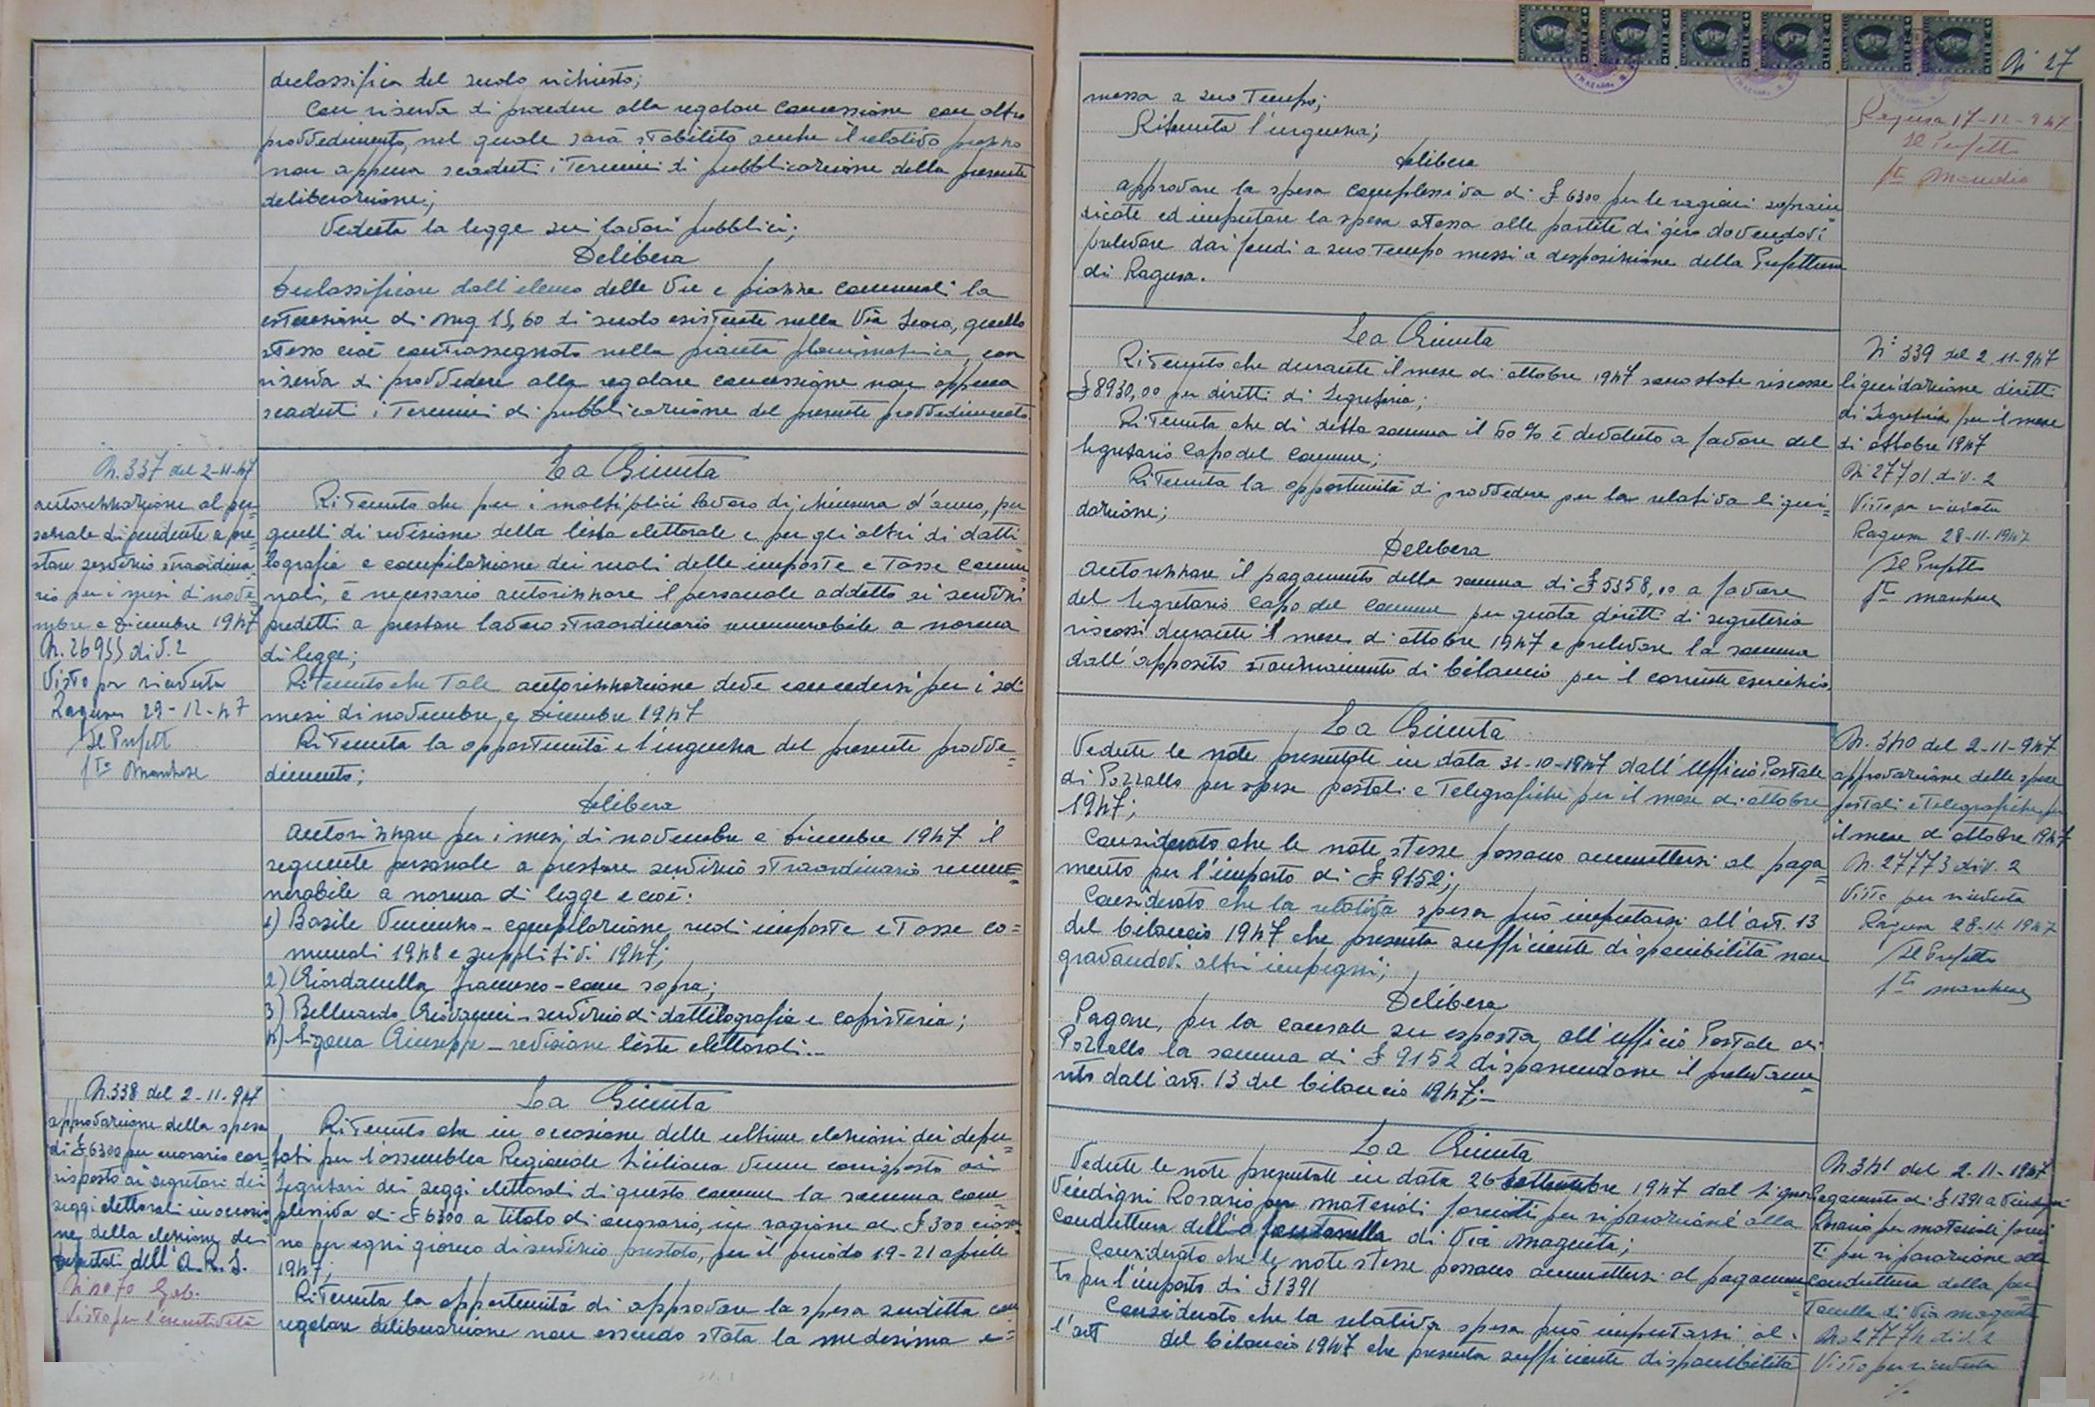 declassifica del suolo richiesto;
Con riserva di procedere alla regolare concessione con altro
provvedimento, nel quale sarà stabilito anche il relativo prezzo
non appena scaduti i termini di pubblicazione della presente
deliberazione;
Veduta la legge sui lavori pubblici;
Delibera
Declassificare dall'elenco delle Vie e piazze comunali la
estensione di mq 15,60 di suolo esistente nella Via quello
stesso cioè contrassegnato nella pianta planimetrica, con
riserva di provvedere alla regolare concessione non appena
scaduti i termini di pubblicazione del presente provvedimento
N. 337 del 2-11-47
autorizzazione al per=
sonale dipendente a pre=
stare servizio straordina=
rio per i mesi di nove=
mbre e dicembre 1947
N. 26955 div. 2
Visto per ricevuta
Ragusa 29-12-47
Il Prefetto
fto Marchese
La Giunta
Ritenuto che per i molteplici lavoro di chiusura d'anno, per
quelli di revisione della lista elettorale e per gli altri di datti=
lografia e compilazione dei ruoli delle imposte e tasse comu=
nali, è necessario autorizzare il personale addetto ai servizi
predetti a prestare lavoro straordinario remunerabile a norma
di legge;
Ritenuto che tale autorizzazione deve concedersi per i soli
mesi di novembre e dicembre 1947
Ritenuta la opportunità e l'urgenza del presente provve=
dimento;
Delibera
Autorizzare per i mesi di novembre e dicembre 1947 il
seguente personale a prestare servizio straordinario remu=
nerabile a norma di legge e cioè:
1) Basile Vincenzo - compilazione ruoli imposte e tasse co=
munali 1948 e suppletivi 1947;
2) Giordanella Francesco - come sopra;
3) Belluardo Giovanni - servizio di dattilografia e copisteria;
4) Azona Giuseppe - revisione liste elettorali.-
N. 338 del 2-11-947
approvazione della spesa
di £ 6300 per onorario cor=
risposto ai segretari dei
seggi elettorali in occasio=
ne della elezione dei
deputati dell'A.R.S.
N. 5070 Gab.
Visto per l'esecutività
La Giunta
Ritenuto che in occasione delle ultime elezioni dei depu=
tati per l'assemblea Regionale Siciliana venne corrisposto ai
Segretari dei seggi elettorali di questo comune la somma com=
plessiva di £ 6300 a titolo di onorario, in ragione di £ 300 ciascu=
no per ogni giorno di servizio prestato, per il periodo 19-21 aprile
1947;
Ritenuta la opportunità di approvare la spesa suddetta con
regolare deliberazione non essendo stata la medesima e=
N. 27
messa a suo tempo;
Ritenuta l'urgenza;
Delibera
approvare la spesa complessiva di £ 6300 per le ragioni soprain=
dicate ed imputare la spesa stessa alle partite di giro dovendovi
prelevare dai fondi a suo tempo messi a disposizione della Prefettura
di Ragusa.
Ragusa 17-12-947
Il Prefetto
fto
La Giunta
Ritenuto che durante il mese di ottobre 1947 sono state riscosse
£ 8930,00 per diritti di Segreteria;
Ritenuta che di detta somma il 60% è devoluto a favore del
Segretario Capo del Comune;
Ritenuta la opportunità di provvedere per la relativa liqui=
dazione;
Delibera
Autorizzare il pagamento della somma di £ 5358,00 a favore
del Segretario Capo del Comune per quota diritti di segreteria
riscossi durante il mese di ottobre 1947 e prelevare la somma
dall'apposito stanziamento di bilancio per il corrente esercizio.
N. 339 del 2-11-947
liquidazione diritti
di Segreteria per il mese
di ottobre 1947
N. 27701 div. 2
Visto per ricevuta
Ragusa 28-11-1947
Il Prefetto
fto Marchese
La Giunta
Vedute le note presentate in data 31-10-1947 dall'Ufficio Postale
di Pozzallo per spese postali e telegrafiche per il mese di ottobre
1947;
Considerato che le note stesse possano ammettersi al paga=
mento per l'importo di £ 9152;
Considerato che la relativa spesa può imputarsi all'art. 13
del bilancio 1947 che presenta sufficiente disponibilità non
gravandovi altri impegni;
Delibera
Pagare, per la causale su esposta, all'ufficio Postale di
Pozzallo la somma di £ 9152 disponendone il prelevame=
nto dall'art. 13 del bilancio 1947;-
N. 340 del 2-11-947
approvazione delle spese
postali e telegrafiche per
il mese d'ottobre 1947
N. 27773 div. 2
Visto per ricevuta
Ragusa 28-11-1947
Il Prefetto
fto Marchese
La Giunta
Vedute le note presentate in data 26 settembre 1947 dal Signor
Vindigni Rosario per materiali forniti per riparazione alla
conduttura della fontanella di Via Magenta;
Considerato che le note stesse possano ammettersi al pagamen=
to per l'importo di £ 1391
Considerato che la relativa spesa può imputarsi al=
l'art del bilancio 1947 che presenta sufficiente disponibilità
N. 341 del 2-11-1947
Pagamento di £ 1391 a Vindigni
Rosario per materiali forni=
ti per riparazione alla
conduttura della fon=
tanella di Via Magenta
N. 27774 div. 2
Visto per ricevuta
%